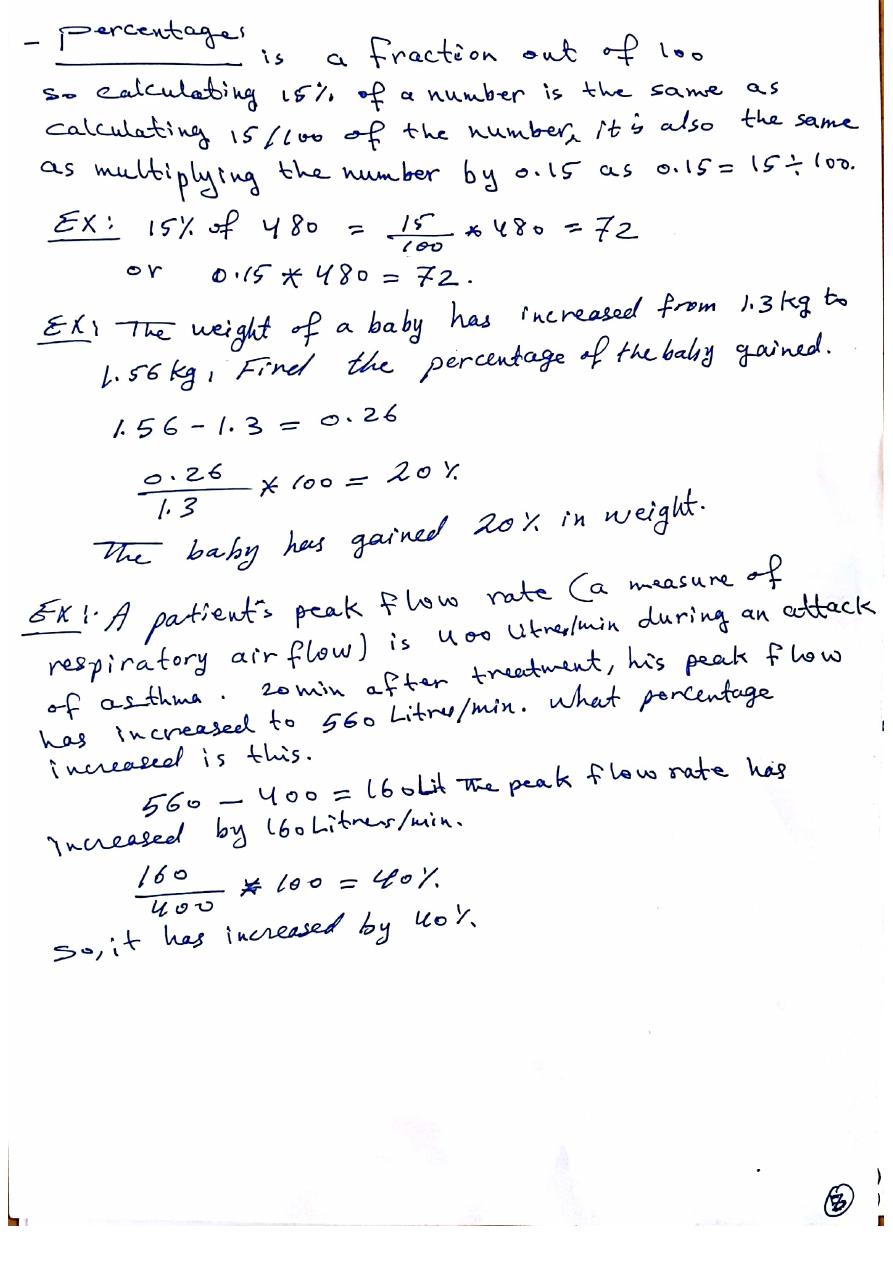 - percentages is a fraction out of 100
so calculating 15% of a number is the same as
calculating 15/100 of the number, it is also the same
as multiplying the number by 0.15 as 0.15 = 15 ÷ 100.
EX: 15% of 480 = 15/100 * 480 = 72
or 0.15 * 480 = 72.
EX: The weight of a baby has increased from 1.3 kg to
1.56 kg, Find the percentage of the baby gained.
1.56 - 1.3 = 0.26
0.26/1.3 * 100 = 20%
The baby has gained 20% in weight.
EX: A patient's peak flow rate (a measure of
respiratory air flow) is 400 Litres/min during an attack
of asthma. 20 min after treatment, his peak flow
has increased to 560 Litres/min. what percentage
increased is this.
560 - 400 = 160 Lit The peak flow rate has
increased by 160 Litrers/min.
160/400 * 100 = 40%
So, it has increased by 40%.